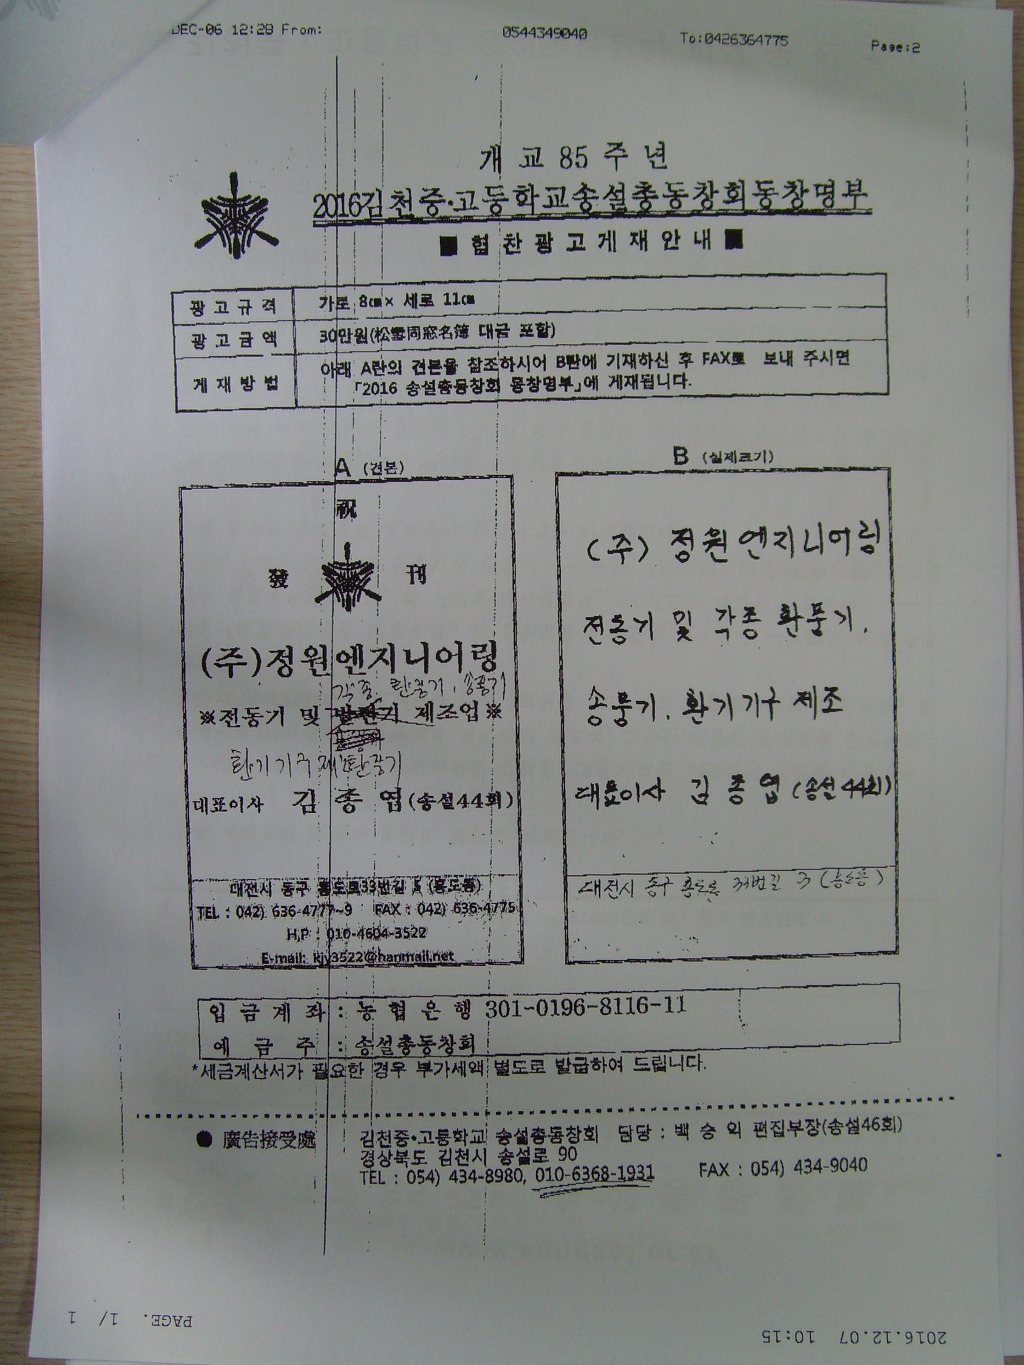 DEC-06 12:28 From: 0544349040 To:0426364775 Page:2
개교 85 주년
2016김천중·고등학교송설총동창회동창명부
■ 협찬광고게재안내 ■
광고규격 가로 8㎝× 세로 11㎝
광고금액 30만원(松雪同窓名簿 대금 포함)
게재방법 아래 A란의 견본을 참조하시어 B란에 기재하신 후 FAX로 보내 주시면
「2016 송설총동창회 동창명부」에 게재됩니다.
A (견본)
祝
發 刊
(주)정원엔지니어링
각종 환풍기, 송풍기
※전동기 및 발전기 제조업※
환기기구 제
대표이사 김 종 엽 (송설44회)
대전시 동구 홍도로33번길 3 (홍도동)
TEL : 042) 636-4777~9 FAX : 042) 636-4775
H.P : 010-4604-3522
E-mail: kjy3522@hanmail.net
B (실제크기)
(주) 정원엔지니어링
전동기 및 각종 환풍기,
송풍기, 환기기구 제조
대표이사 김 종 엽 (송설 44회)
대전시 동구 홍도로 33번길 3 (홍도동)
입금계좌 : 농협은행 301-0196-8116-11
예금주 : 송설총동창회
*세금계산서가 필요한 경우 부가세액 별도로 발급하여 드립니다.
● 廣告接受處 김천중·고등학교 송설총동창회 담당 : 백 승 익 편집부장(송설46회)
경상북도 김천시 송설로 90
TEL : 054) 434-8980, 010-6368-1931 FAX : 054) 434-9040
2016.12.07 10:15 PAGE. 1/ 1